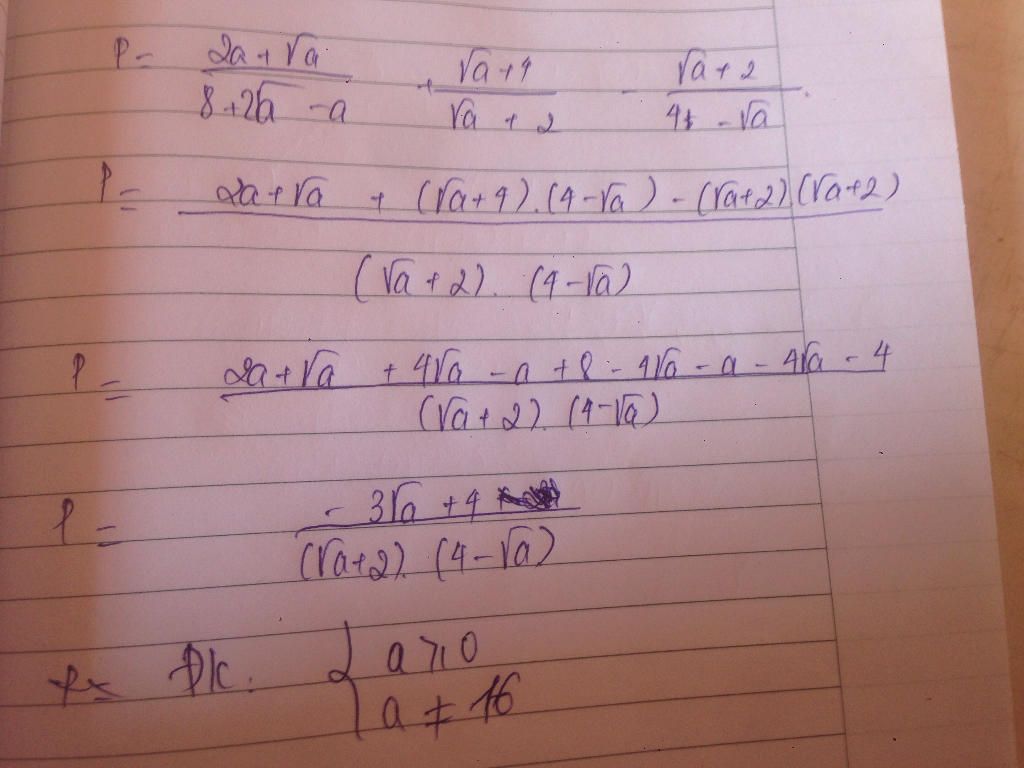 P = (2a + √a)/(8 + 2√a - a) + (√a + 4)/(√a + 2) - (√a + 2)/(4 - √a).
P = (2a + √a + (√a + 4).(4 - √a) - (√a + 2)(√a + 2))/((√a + 2).(4 - √a))
P = (2a + √a + 4√a - a + 8 - 4√a - a - 4√a - 4)/((√a + 2).(4 - √a))
P = (- 3√a + 4)/((√a + 2).(4 - √a))
ĐK: { a ≥ 0
a ≠ 16